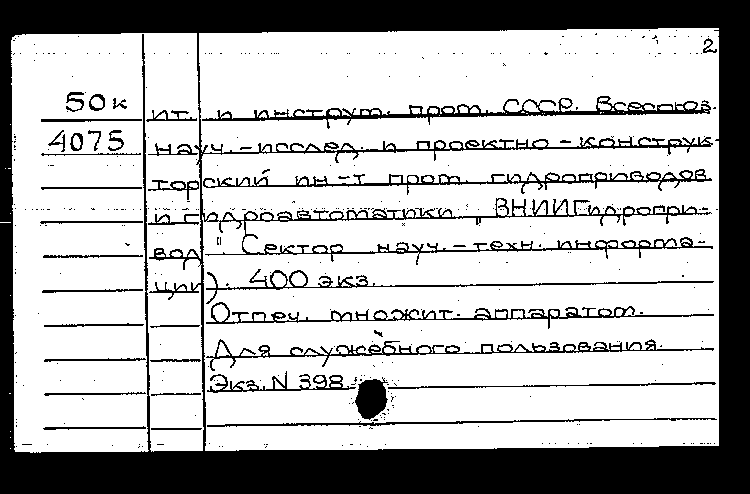 2
50к ит. и инструм. пром. СССР. Всесоюз.
4075 науч.-исслед. и проектно-конструк-
торский ин-т пром. гидроприводов
и гидроавтоматики „ВНИИГидропри-
вод". Сектор науч.-техн. информа-
ции). 400 экз.
Отпеч. множит. аппаратом.
Для служебного пользования.
Экз. N 398